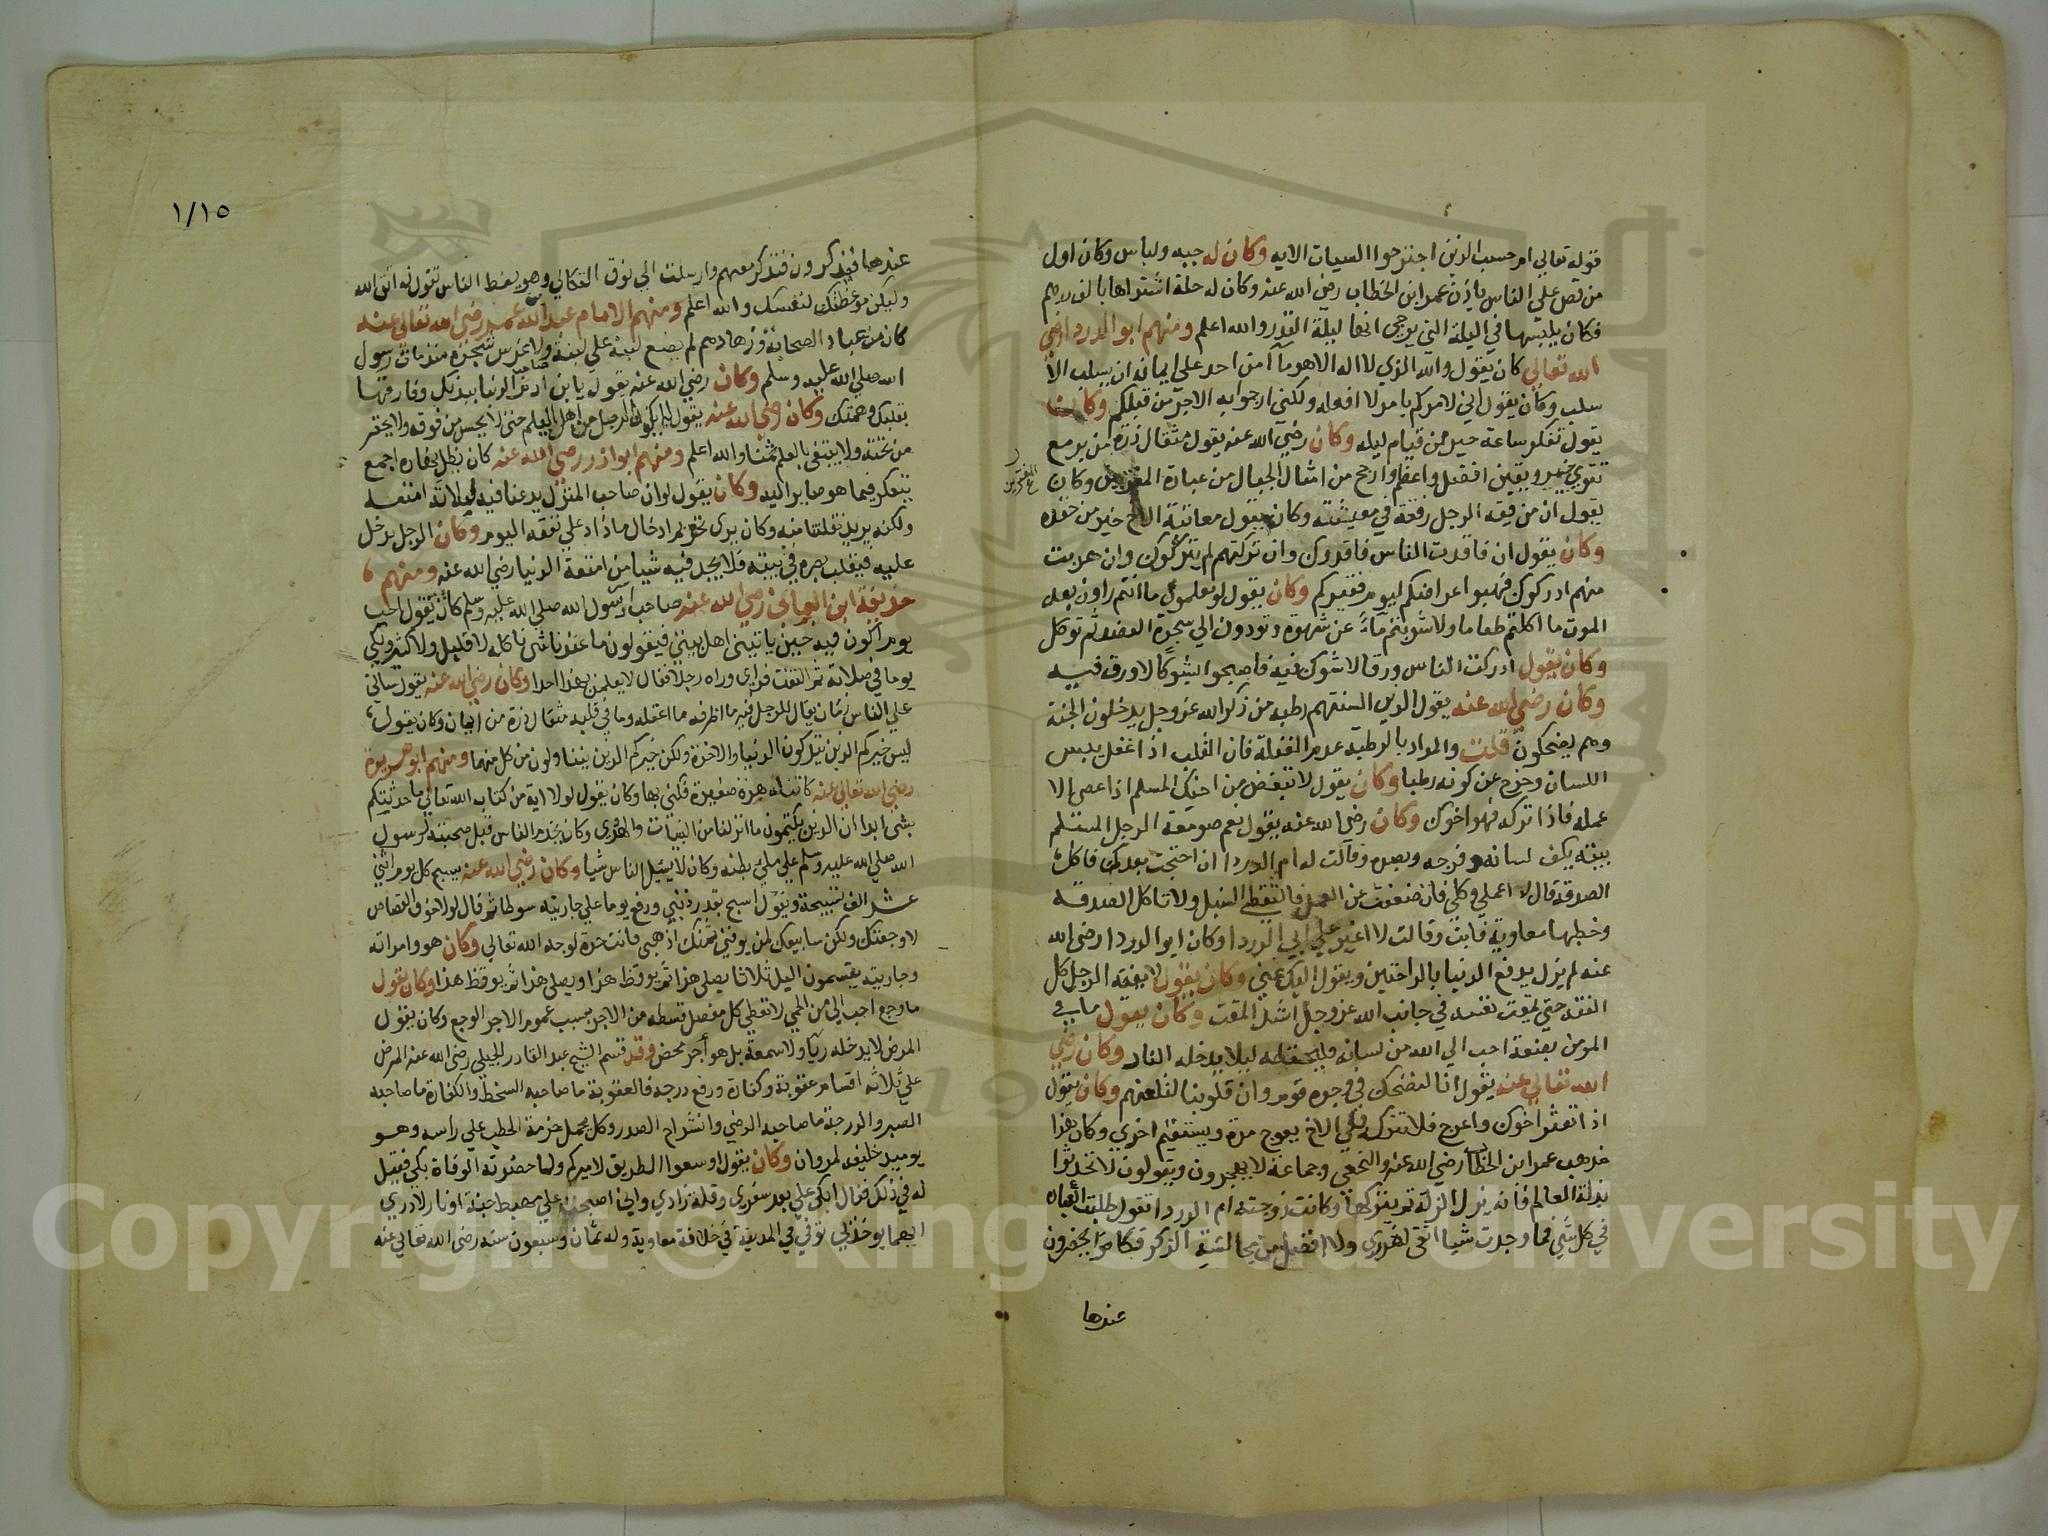 قوله تعالى ام حسب الذين اجترحوا السيات الايه وكان له جبه ولباس وكان اول
من قص علي الناس باذن عمر ابن الخطاب رضي الله عنه وكان له حلة اشتراها بالف درهم
فكان يلبسها في الليلة التي يرجي انها ليلة القدر والله اعلم ومنهم ابو الدردا رضي
الله تعالي كان يقول والله الذي لا اله الا هو ما امن احد علي ايمانه ان يسلب الا
سلب وكان يقول اني لامركم بامر لا افعله ولكني ارجوا به الاجر من قبلكم وكان
يقول تفكر ساعة خير من قيام ليله وكان رضي الله عنه يقول مثقال ذرة من بر مع
تقوي ويقين افضل واعظم وارجح من امثال الجبال من عبادة المغترين وكان
المغترين
يقول ان من فقه الرجل رفقة في معيشته وكان يقول معاتبة الاخ خير من فقده
وكان يقول ان فاقدت الناس فاقدوك وان تركتهم لم يتركوك وان هربت
منهم ادركوك فهبوا اعراضكم ليوم فقركم وكان يقول لو تعلمون ما انتم راون بعد
الموت ما اكلتم طعاما ولا شربتم ماء عن شهوة وتودون الي شجرة تعضد ثم توكل
وكان يقول ادركت الناس ورقا لا شوك فيه فاصبحوا شوكا لا ورق فيه
وكان رضي الله عنه يقول الذين السنتهم رطبه من ذكر الله عز وجل يدخلون الجنة
وهم يضحكون قلت والمراد بالرطبة عدم الغفلة فان القلب اذا غفل يبس
اللسان وخرج عن كونه رطبا وكان يقول لا تبغض من اخيك المسلم اذا عصي الا
عمله فاذا تركه فهو اخوك وكان رضي الله عنه يقول نعم صومعة الرجل المسلم
بيته يكف لسانه وفرجه وبصره وقالت له ام الدردا ان احتجت بعدك فاكل
الصدقة قال لا اعملي وكلي فان ضعفت عن العمل فالتقطي السنبل ولا تاكل الصدقة
وخطبها معاوية فابت وقالت لا اغير علي ابي الدردا وكان ابو الدردا رضي الله
عنه لم يزل يدفع الدنيا بالراحتين ويقول اليك عني وكان يقول لا يفقه الرجل كل
الفقه حتي يمقت نفسه في جانب الله عز وجل اشد المقت وكان يقول ما في
المومن بضعة احب الي الله من لسانه فليحفظه ليلا يدخله النار وكان رضي
الله تعالي عنه يقول انا لنضحك في وجوه قوم وان قلوبنا لتلعنهم وكان يقول
اذا تغير اخوك واعوج فلا تتركه فان الاخ يعوج مرة ويستقيم اخري وكان هذا
مذهب عمر ابن الخطاب رضي الله عنه والنخعي وجماعة لا يهجرون ويقولون لا تحدثوا
بزلة العالم فانه يزل الزلة ثم يتركها وكانت زوجته ام الدردا تقول طلبت العبادة
في كل شي فما وجدت شيا اشفي لصدري ولا افضل من مجالسة الذكر فكانوا يحضرون
عندها
١/١٥
عندها فيذكرون فتذكر معهم وارسلت الي نوف البكالي وهو يعظ الناس تقول له اتق الله
وليكن موعظتك لنفسك والله اعلم ومنهم الامام عبد الله عمر رضي الله تعالي عنه
كان من عباد الصحابة وزهادهم لم يضع لبنة علي لبنة ولا غرس شجرة منذ مات رسول
الله صلي الله عليه وسلم وكان رضي الله عنه يقول يا بن ادم صاحب الدنيا ببدنك وفارقها
بقلبك وهمتك وكان رضي الله عنه يقول لا يكون الرجل من اهل العلم حتي لا يحسد من فوقه ولا يحقر
من تحته ولا يبتغي بالعلم ثمنا والله اعلم ومنهم ابو ذر رضي الله عنه كان يظل نهاره اجمع
يتفكر فيما هو صاير اليه وكان يقول لو ان صاحب المنزل يدعنا فيه لملاناه امتعه
ولكنه يريد نقلتنا منه وكان يري تحريم ادخار ما زاد علي نفقه اليوم وكان الرجل يدخل
عليه فيقلب بصره في بيته فلا يجد فيه شيا من امتعة الدنيا رضي الله عنه ومنهم
حذيفة ابن اليمان رضي الله عنه صاحب سر رسول الله صلي الله عليه وسلم كان يقول احب
يوم اكون فيه حين ياتيني اهل بيتي فيقولون ما عندنا شي ناكله لا قليل ولا كثير وبكي
يوما في صلاته ثم التفت فراي وراه رجلا فقال لا يعلمن بهذا احدا وكان رضي الله عنه يقول سياتي
علي الناس زمان يقال للرجل فيه ما اظرفه ما اعقله وما في قلبه مثقال ذرة من ايمان وكان يقول
ليس خيركم الذين يتركون الدنيا والاخرة ولكن خيركم الذين يتناولون من كل منهما ومنهم ابو هريرة
رضي الله تعالي عنه كانت له هرة صغيرة فكني بها وكان يقول لولا اية من كتاب الله تعالي ما حدثتكم
بشي ابدا ان الذين يكتمون ما انزلنا من البينات والهدي وكان يخدم الناس قبل صحبته لرسول
الله صلي الله عليه وسلم علي ملي بطنه وكان لا يسيل الناس شيا وكان رضي الله عنه يسبح كل يوم اثني
عشر الف تسبيحة ويقول اسبح بقدر ذنبي ورفع يوما علي جاريته سوطا ثم قال لولا خوف القصاص
لاوجعتك ولكن سابيعك لمن يوفيني ثمنك اذهبي فانت حرة لوجه الله تعالي وكان هو وامراته
وجاريته يقتسمون اليل ثلاثا يصلي هذا ثم يوقظ هذا ويصلي هذا ثم يوقظ هذا وكان يقول
ما وجع احب الي من الحمي لانها تعطي كل مفصل قسطه من الاجر بسبب عموم الاجر الوجع وكان يقول
المرض لا يدخله ريا ولا سمعة بل هو اجر محض وقد قسم الشيخ عبد القادر الجيلي رضي الله عنه المرض
علي ثلاثه اقسام عقوبة وكفارة ورفع درجه فالعقوبة ما صاحبه السخط والكفارة ما صاحبه
الصبر والدرجة ما صاحبه الرضي وانشراح الصدر وكان يحمل حزمة الحطب علي راسه وهو
يوميذ خليفه لمروان وكان يقول اوسعوا الطريق لاميركم ولما حضرته الوفاة بكي فقيل
له في ذلك فقال ابكي علي بعد سفري وقلة زادي واني اصبحت علي مهبط جنة او نار لا ادري
ايهما يوخذ بي توفي في المدينة في خلافة معاوية وله ثمان وسبعون سنه رضي الله تعالي عنه
Copyright © King Saud University